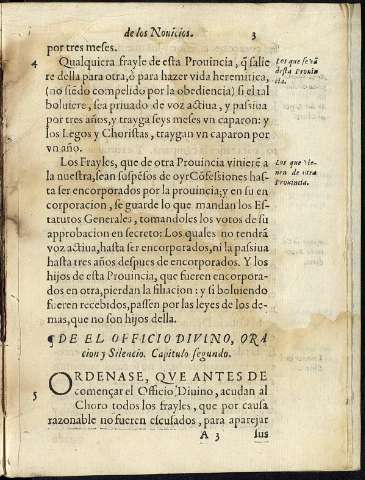 de los Nouicios. 3
por tres meses.
4 Qualquiera frayle de esta Prouincia, q̃ salie
re della para otra, ò para hazer vida heremitica,
(no siẽdo compelido por la obediencia) si el tal
boluiere, sea priuado de voz actiua, y passiua
por tres años, y trayga seys meses vn caparon: y
los Legos y Choristas, traygan vn caparon por
vn año.
Los que salẽ
desta Prouin
cia.
Los Frayles, que de otra Prouincia vinierẽ a
la nuestra, sean suspẽsos de oyr Cõfessiones has-
ta ser encorporados por la prouincia; y en su en
corporacion, se guarde lo que mandan los Es-
tatutos Generales, tomandoles los votos de su
approbacion en secreto: Los quales no tendrã
voz actiua, hasta ser encorporados, ni la passiua
hasta tres años despues de encorporados. Y los
hijos de esta Prouincia, que fueren encorpora-
dos en otra, pierdan la filiacion: y si boluiendo
fueren recebidos, passen por las leyes de los de-
mas, que no son hijos della.
Los que vie-
nen de otra
Prouincia.
¶ DE EL OFFICIO DIVINO, ORA
cion y Silencio. Capitulo segundo.
5 ORDENASE, QVE ANTES DE
començar el Officio Diuino, acudan al
Choro todos los frayles, que por causa
razonable no fueren escusados, para aparejar
A 3 sus